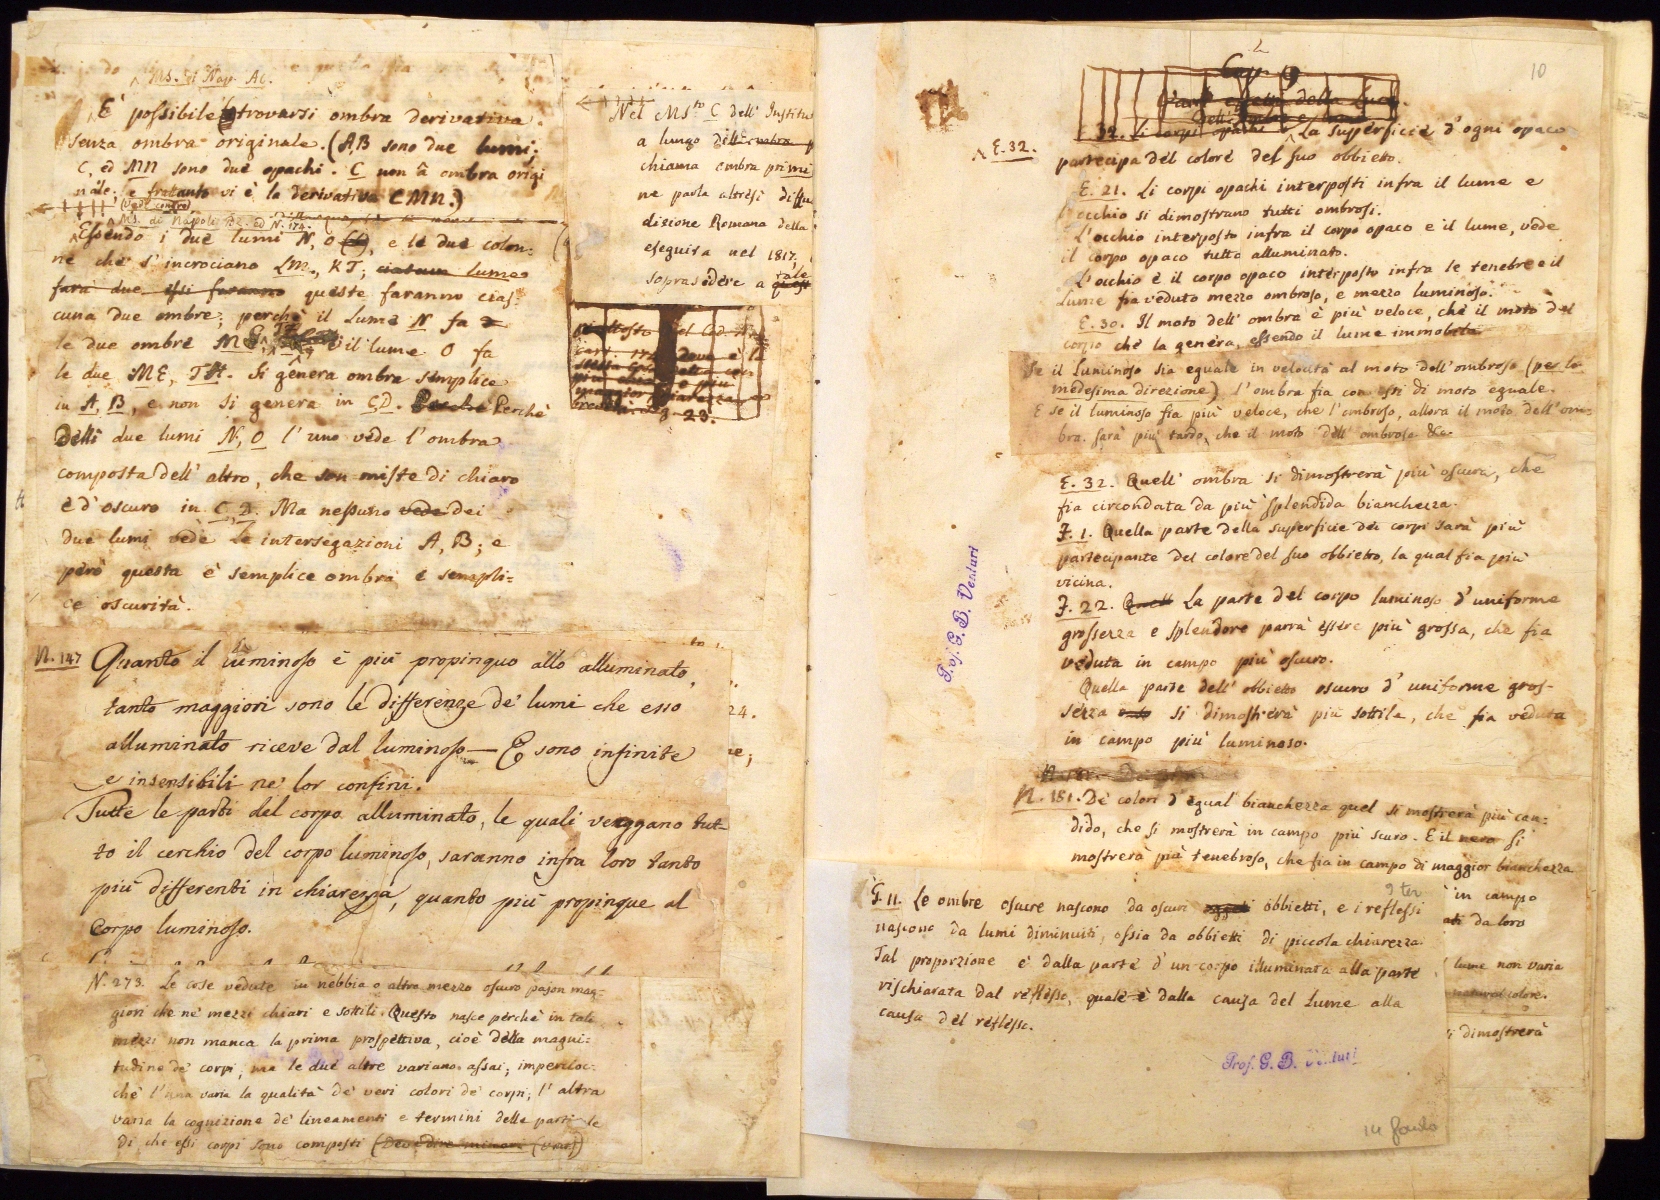 Ms. di Nap. Ac.
È possibile trovarsi ombra derivativa
senza ombra originale. (A,B sono due lumi;
C, ed MN sono due opachi. C non à ombra origi
nale. e frattanto vi è la derivativa CMN.)
(Vedi contro)
Ms. di Napoli ed N. 174.
Essendo i due lumi N, O, e le due colon:
ne che s'incrociano LM, KT, ciascun lume
farà due essi faranno queste faranno cias:
cuna due ombre; perchè il lume N fa
le due ombre il lume O fa
le due ME, . Si genera ombra semplice
in A, B, e non si genera in C,D. Perchè
Delli due lumi N, O l'uno vede l'ombra
composta dell'altro, che son miste di chiaro
e d'oscuro in C, D. Ma nessuno vede dei
due lumi vede le intersegazioni A, B; e
però questa è semplice ombra e sempli=
ce oscurità.
N. 147 Quanto il luminoso è più propinquo allo alluminato,
tanto maggiori sono le differenze de' lumi che esso
alluminato riceve dal luminoso — E sono infinite
e insensibili ne' lor confini.
Tutte le parti del corpo alluminato, le quali veggano tut-
to il cerchio del corpo luminoso, saranno infra loro tanto
più differenti in chiarezza, quanto più propinque al
Corpo luminoso.
24.
ne;
N. 273. Le cose vedute in nebbia o altro mezzo oscuro pajon mag-
giori che ne' mezzi chiari e sottili. Questo nasce perchè in tali
mezzi non manca la prima prospettiva, cioè della magni:
tudine de' corpi; ma le due altre variano assai; imperoc:
chè l'una varia la qualità de' veri colori de' corpi; l'altra
varia la cognizione de' lineamenti e termini delle parti
di che essi corpi sono composti
Nel Ms.to C dell'Institu
a lungo dell'ombra
chiama ombra primi
ne parla altresì diffu
dizione Romana della
eseguita nel 1817,
soprasedere a tale
piuttosto nel Cod. N.
cart. 174 dove è la
23.
10
Cap. 9
Parte della Luce.
32. Li corpi opachi La superficie d'ogni opaco
E. 32.
partecipa del colore del suo obbietto.
E. 21. Li corpi opachi interposti infra il lume e
l'occhio si dimostrano tutti ombrosi.
L'occhio interposto infra il corpo opaco e il lume, vede
il corpo opaco tutto alluminato.
L'occhio è il corpo opaco interposto infra le tenebre e il
lume fia veduto mezzo ombroso, e mezzo luminoso.
E. 30. Il moto dell'ombra è più veloce, che il moto del
corpo che la genera, essendo il lume immobile
Se il Luminoso sia eguale in velocità al moto dell'ombroso (per la
medesima direzione) l'ombra fia con essi di moto eguale.
E se il luminoso fia più veloce, che l'ombroso, allora il moto dell'om=
bra sarà più tardo, che il moto dell'ombroso &c.
E. 32. Quell'ombra si dimostrerà più oscura, che
fia circondata da più splendida bianchezza.
F. 1. Quella parte della superficie dei corpi sarà più
partecipante del colore del suo obbietto, la qual fia più
vicina.
F. 22. Quell La parte del corpo luminoso d'uniforme
grossezza e splendore parrà essere più grossa, che fia
veduta in campo più oscuro.
Quella parte dell'obbietto oscuro d'uniforme gros-
sezza si dimostrerà più sottile, che fia veduta
in campo più luminoso.
N. 181. De' colori d'egual bianchezza quel si mostrerà più can:
dido, che si mostrerà in campo più scuro. E il nero si
mostrerà più tenebroso, che fia in campo di maggior bianchezza
in campo
da loro
lume non varia
natural colore.
si dimostrerà
9 ter
G 11. Le ombre oscure nascono da oscuri obbietti, e i reflessi
nascono da lumi diminuiti, ossia da obbietti di piccola chiarezza
Tal proporzione è dalla parte d'un corpo illuminata alla parte
rischiarata dal reflesso, quale è dalla causa del Lume alla
causa del reflesso.
Prof. G. B. Venturi
Prof. G. B. Venturi